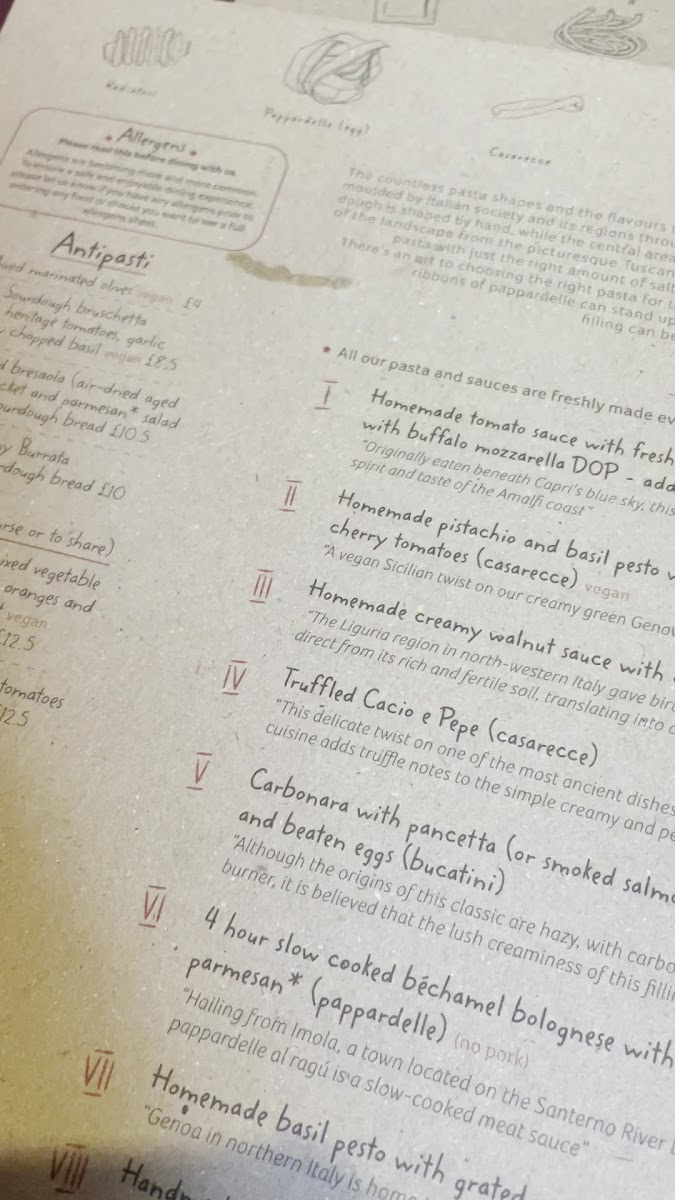 Radiatori
Pappardelle (egg)
Casarecce
Allergens
Please read this before dining with us.
Allergens are becoming more and more common.
To ensure a safe and enjoyable dining experience,
please let us know if you have any allergens prior to
ordering any food or should you want to see a full
allergens sheet.
The countless pasta shapes and the flavours
moulded by Italian society and its regions throu
dough is shaped by hand, while the central area
of the landscape from the picturesque Tuscan
pasta with just the right amount of salt
There's an art to choosing the right pasta for t
ribbons of pappardelle can stand up
filling can be
Antipasti
marinated olives vegan £4
Sourdough bruschetta
heritage tomatoes, garlic
chopped basil vegan £8.5
d bresaola (air-dried aged
cket and parmesan* salad
ourdough bread £10.5
Burrata
rdough bread £10
rse or to share)
ixed vegetable
oranges and
vegan
£12.5
tomatoes
12.5
* All our pasta and sauces are freshly made ev
I Homemade tomato sauce with fresh
with buffalo mozzarella DOP - add
"Originally eaten beneath Capri's blue sky, this
spirit and taste of the Amalfi coast"
II Homemade pistachio and basil pesto w
cherry tomatoes (casarecce) vegan
"A vegan Sicilian twist on our creamy green Genov
III Homemade creamy walnut sauce with
"The Liguria region in north-western Italy gave bir
direct from its rich and fertile soil, translating into
IV Truffled Cacio e Pepe (casarecce)
"This delicate twist on one of the most ancient dishes
cuisine adds truffle notes to the simple creamy and pe
V Carbonara with pancetta (or smoked salmo
and beaten eggs (bucatini)
"Although the origins of this classic are hazy, with carbo
burner, it is believed that the lush creaminess of this filli
VI 4 hour slow cooked béchamel bolognese with
parmesan* (pappardelle) (no pork)
"Hailing from Imola, a town located on the Santerno River
pappardelle al ragú is a slow-cooked meat sauce"
VII Homemade basil pesto with grated
"Genoa in northern Italy is home
VIII